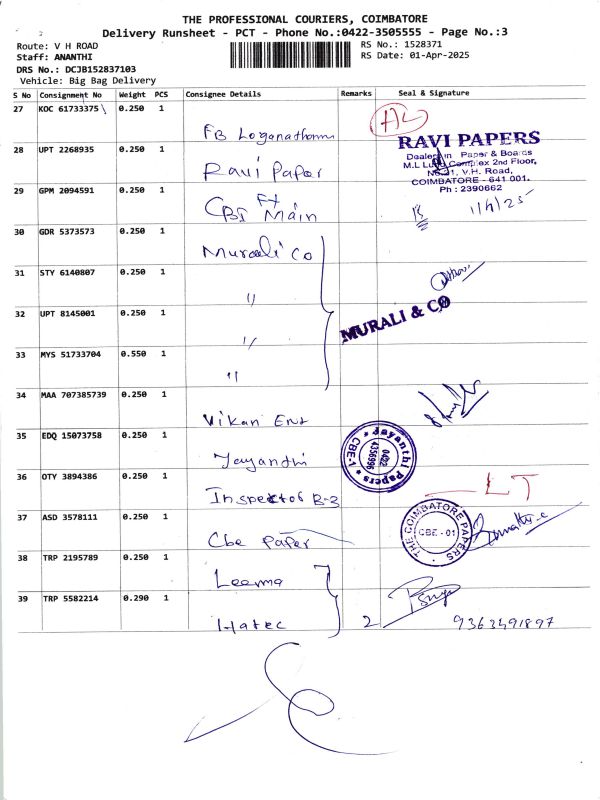 THE PROFESSIONAL COURIERS, COIMBATORE
Delivery Runsheet - PCT - Phone No.:0422-3505555 - Page No.:3
Route: V H ROAD
RS No.: 1528371
Staff: ANANTHI
RS Date: 01-Apr-2025
DRS No.: DCJB152837103
Vehicle: Big Bag Delivery
S No Consignment No Weight PCS Consignee Details Remarks Seal & Signature
27 KOC 61733375 0.250 1
FB Loganathan
RAVI PAPERS
Dealers in Paper & Boards
Complex 2nd Floor,
V.H. Road,
COIMBATORE - 641 001.
Ph : 2390662
28 UPT 2268935 0.250 1
Ravi Paper
29 GPM 2094591 0.250 1
CBI Main
1/4/25
30 GDR 5373573 0.250 1
Murali Co
31 STY 6140807 0.250 1
"
32 UPT 8145001 0.250 1
"
MURALI & CO
33 MYS 51733704 0.550 1
"
34 MAA 707385739 0.250 1
Vikan Ent
35 EDQ 15073758 0.250 1
Jayandhi
Jayanthi Papers
CBE-1
0422
4356996
36 OTY 3894386 0.250 1
Inspector B-3
LT
37 ASD 3578111 0.250 1
Cbe Paper
THE COIMBATORE PAPERS
CBE - 01
38 TRP 2195789 0.250 1
Leema
39 TRP 5582214 0.290 1
Hatec
2
9363491897